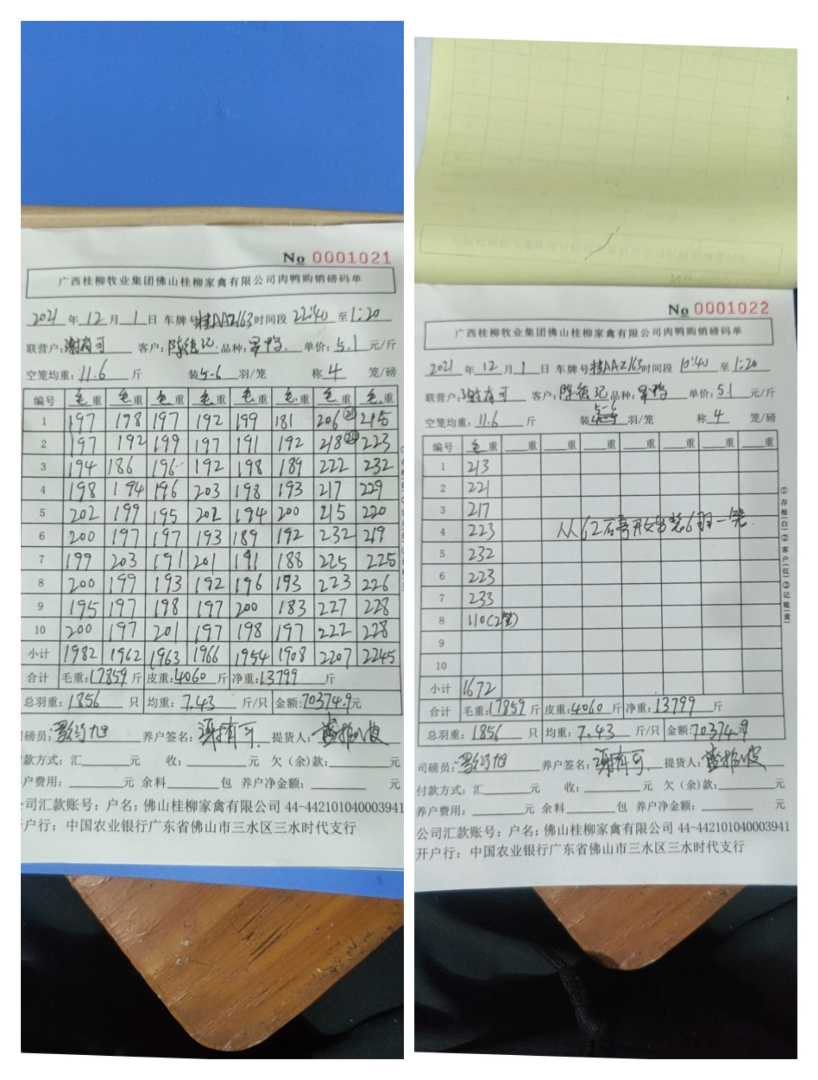 No 0001021
广西桂柳牧业集团佛山桂柳家禽有限公司肉鸭购销磅码单
2021 年 12 月 1 日 车牌号桂AAZ163时间段 22:40 至 1:20
联营户: 谢有可 客户: 陈德记 品种: 单价: 5.1 元/斤
空笼均重: 11.6 斤 装5-6 羽/笼 称 4 笼/磅
编号 毛重 毛重 毛重 毛重 毛重 毛重 毛重 毛重
1 197 198 197 192 199 181 206 215
2 197 192 199 197 191 192 218 223
3 194 186 196 192 198 189 222 232
4 198 194 196 203 198 193 217 229
5 202 199 195 202 194 200 215 220
6 200 197 197 193 189 192 232 219
7 199 203 191 201 191 188 225 225
8 200 199 193 192 196 193 223 226
9 195 197 198 197 200 183 227 228
10 200 197 201 197 198 197 222 228
小计 1982 1962 1963 1966 1954 1908 2207 2245
合计 毛重: 17859 斤 皮重: 4060 斤 净重: 13799 斤
总羽重: 1856 只 均重: 7.43 斤/只 金额: 70374.9元
司磅员: 养户签名: 谢有可 提货人:
款方式: 汇 元 收: 元 欠(余)款: 元
户费用: 元 余料 包 养户净金额: 元
司汇款账号: 户名: 佛山桂柳家禽有限公司 44-442101040003941
户行: 中国农业银行广东省佛山市三水区三水时代支行
No 0001022
广西桂柳牧业集团佛山桂柳家禽有限公司肉鸭购销磅码单
2021 年 12 月 1 日 车牌号桂AAZ163时间段 10:40 至 1:20
联营户: 谢有可 客户: 陈德记 品种: 单价: 5.1 元/斤
空笼均重: 11.6 斤 装 5-6 羽/笼 称 4 笼/磅
编号 毛重 重 重 重 重 重 重 重
1 213
2 221
3 217
4 223 从62后弯 6羽一笼.
5 232
6 223
7 233
8 110(2笼)
9
10
小计 1672
合计 毛重: 17859 斤 皮重: 4060 斤 净重: 13799 斤
总羽重: 1856 只 均重: 7.43 斤/只 金额: 70374.9
司磅员: 养户签名: 谢有可 提货人:
付款方式: 汇 元 收: 元 欠(余)款: 元
养户费用: 元 余料 包 养户净金额: 元
公司汇款账号: 户名: 佛山桂柳家禽有限公司 44-442101040003941
开户行: 中国农业银行广东省佛山市三水区三水时代支行
①存根(白)②客户(红)③记账(黄)